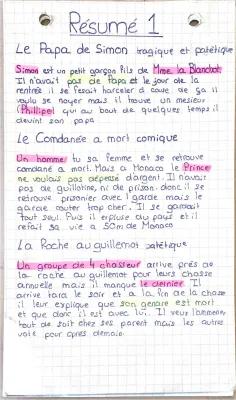 Résumé 1
Le Papa de Simon tragique et patétique
Simon est un petit garçon fils de Mme la Blanchot.
Il n'avait pas de Papa et le jour de la
rentrée il se fesait harceler à cause de ça il
voulu se noyer mais il trouve un mesieur
(Phillipe) qui au bout de quelques temps il
devint son papa
Le Comdanée a mort comique
Un homme tu sa femme et se retrouve
condané a mort. Mais a Monaco le Prince
ne voulais pas dépensé d'argent. Il n'avait
pas de guillotine, ni de prison. donc il se
retrouve prisonier avec 1 garde mais le
garde couter trop cher. Il se gardait
tout seul. Puis il expluse du pays et il
refait sa vie a 50m de Monaco
La Roche au guillemot patétique
Un groupe de 4 chasseur arrive près de
la roche au guillemot pour leurs chasse
annuelle mais il manque le dernier. Il
arrive tard le soir et a la fin de la chasse
il leur explique que son gendre est mort
et que donc il est avec lui. Il veux l'amener
tout de suit chez ses parent mais les autres
vote pour après demain.